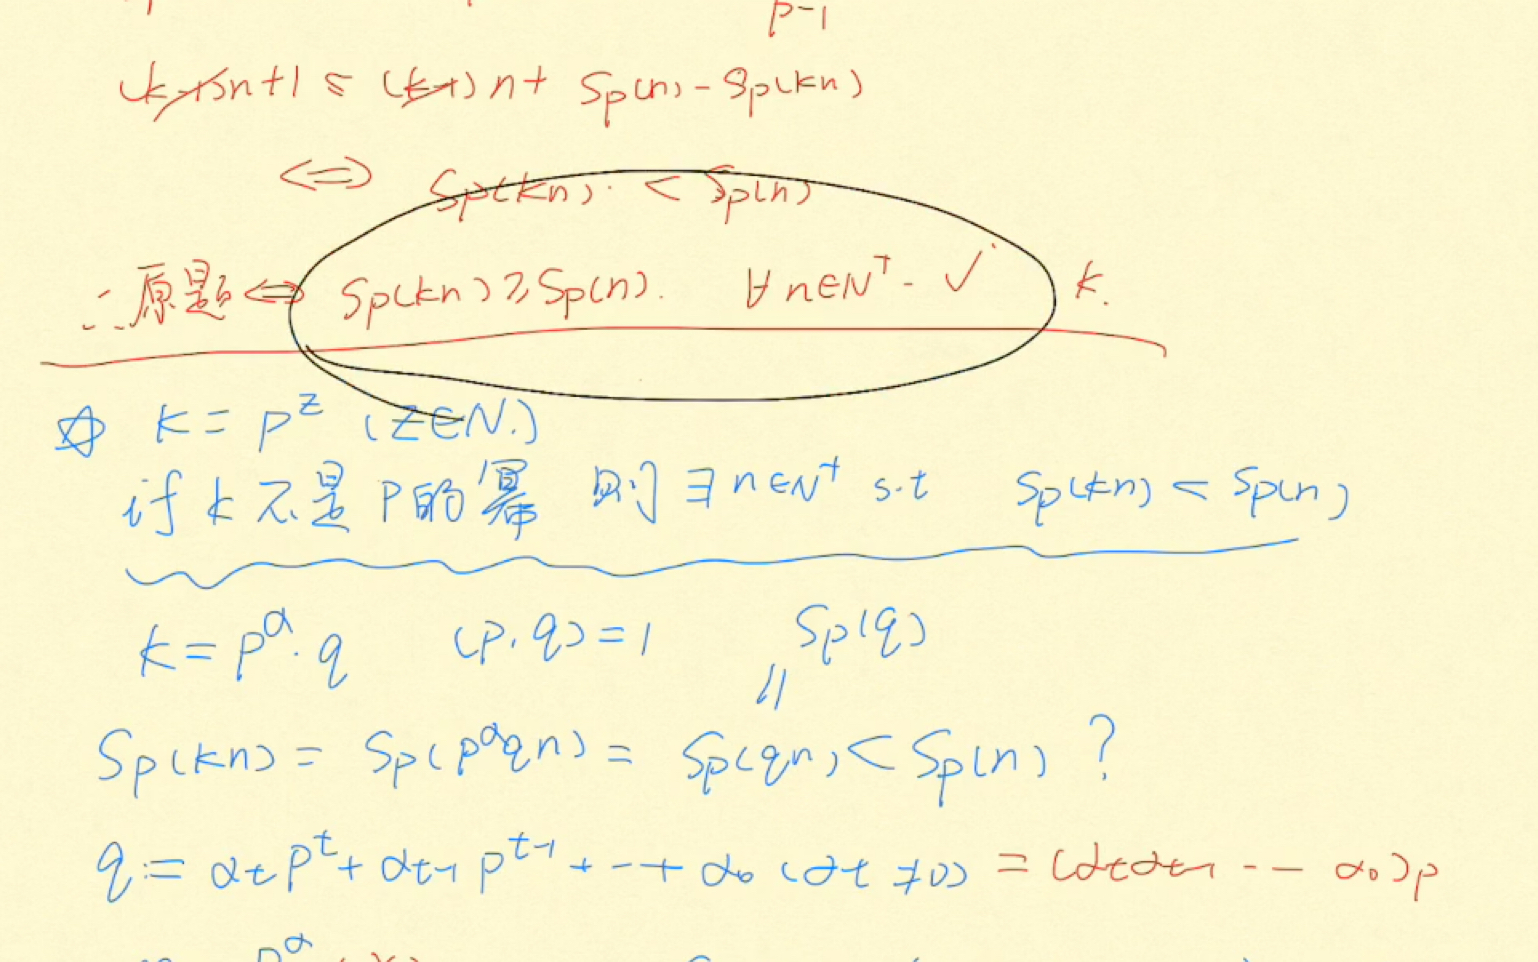 p-1
(k-1)n+1 ≤ (k-1)n+ Sp(n)-Sp(kn)
⇔ Sp(kn). < Sp(n)
∴原题⇔ Sp(kn)≥Sp(n). ∀n∈N⁺. ✓ k.
☆ k=p^z (z∈N.)
讨k不是p的幂 则∃n∈N⁺ s.t Sp(kn)<Sp(n)
k=p^α·q (p,q)=1 Sp(q)
||
Sp(kn)=Sp(p^αqn)=Sp(qn)<Sp(n)?
q:=α_t p^t+α_{t-1} p^{t-1}+--+α₀(α_t≠0)=(α_tα_{t-1}--- α₀)p
p^α